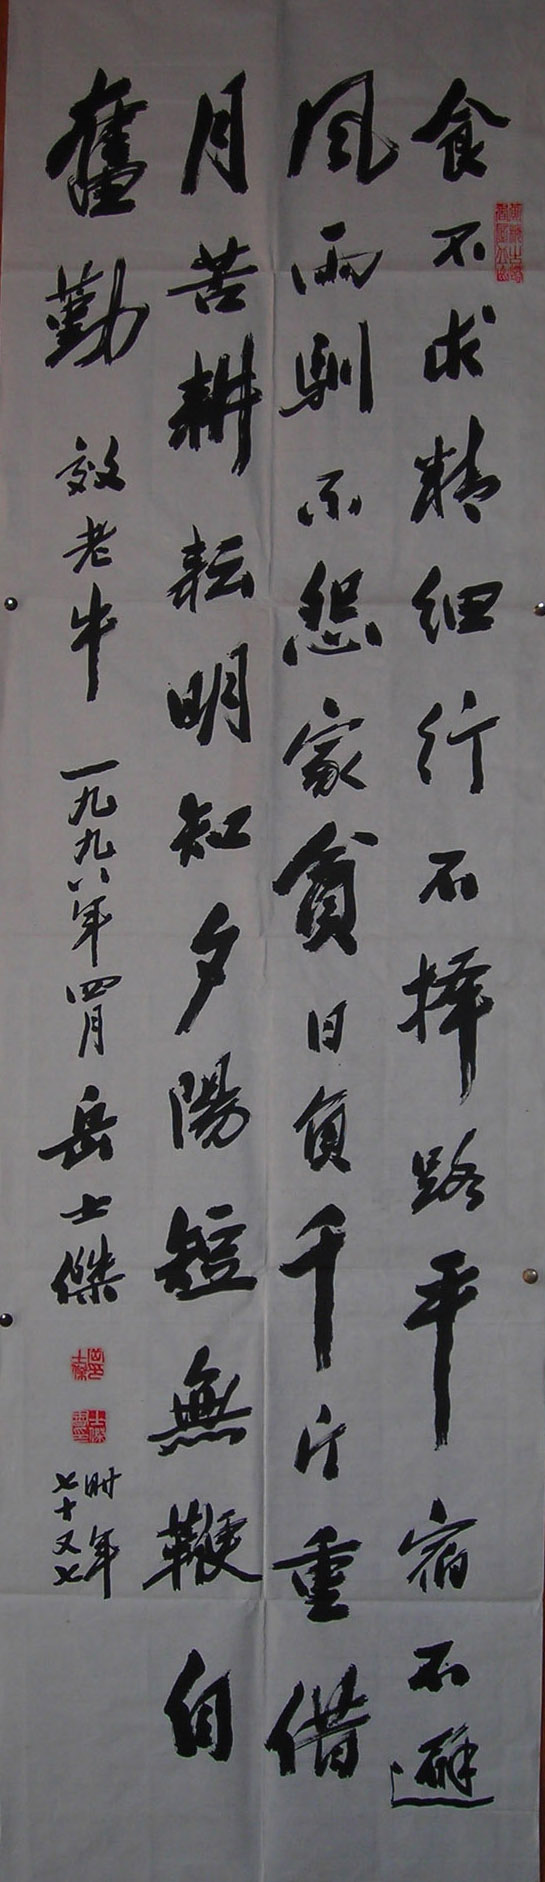 食不求精細行不擇路平宿不避
風雨馴不怨家貧日負千斤重借
月苦耕耘明知夕陽短無鞭自
奮勤 效老牛 一九九八年四月 岳士傑
時年
七十又七